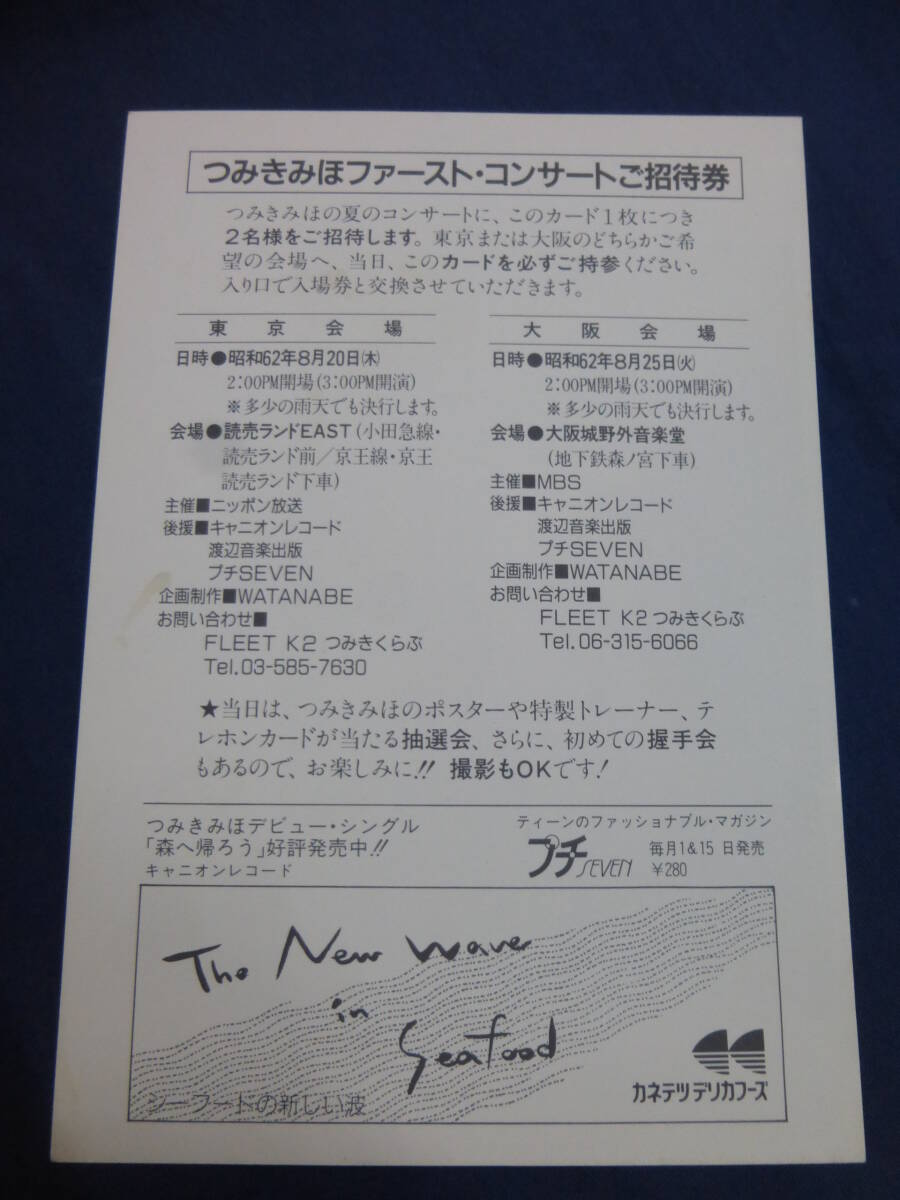 つみきみほファースト・コンサートご招待券
つみきみほの夏のコンサートに、このカード1枚につき
2名様をご招待します。東京または大阪のどちらかご希
望の会場へ、当日、このカードを必ずご持参ください。
入り口で入場券と交換させていただきます。
東京会場
日時●昭和62年8月20日(木)
2:00PM開場(3:00PM開演)
※多少の雨天でも決行します。
会場●読売ランドEAST(小田急線・
読売ランド前/京王線・京王
読売ランド下車)
主催■ニッポン放送
後援■キャニオンレコード
渡辺音楽出版
プチSEVEN
企画制作■WATANABE
お問い合わせ■
FLEET K2 つみきくらぶ
Tel.03-585-7630
大阪会場
日時●昭和62年8月25日(火)
2:00PM開場(3:00PM開演)
※多少の雨天でも決行します。
会場●大阪城野外音楽堂
(地下鉄森ノ宮下車)
主催■MBS
後援■キャニオンレコード
渡辺音楽出版
プチSEVEN
企画制作■WATANABE
お問い合わせ■
FLEET K2 つみきくらぶ
Tel.06-315-6066
★当日は、つみきみほのポスターや特製トレーナー、テ
レホンカードが当たる抽選会、さらに、初めての握手会
もあるので、お楽しみに!! 撮影もOKです!
つみきみほデビュー・シングル
「森へ帰ろう」好評発売中!!
キャニオンレコード
ティーンのファッショナブル・マガジン
プチSEVEN 毎月1&15日発売
¥280
The New Wave
in
Seafood
シーフードの新しい波
カネテツデリカフーズ